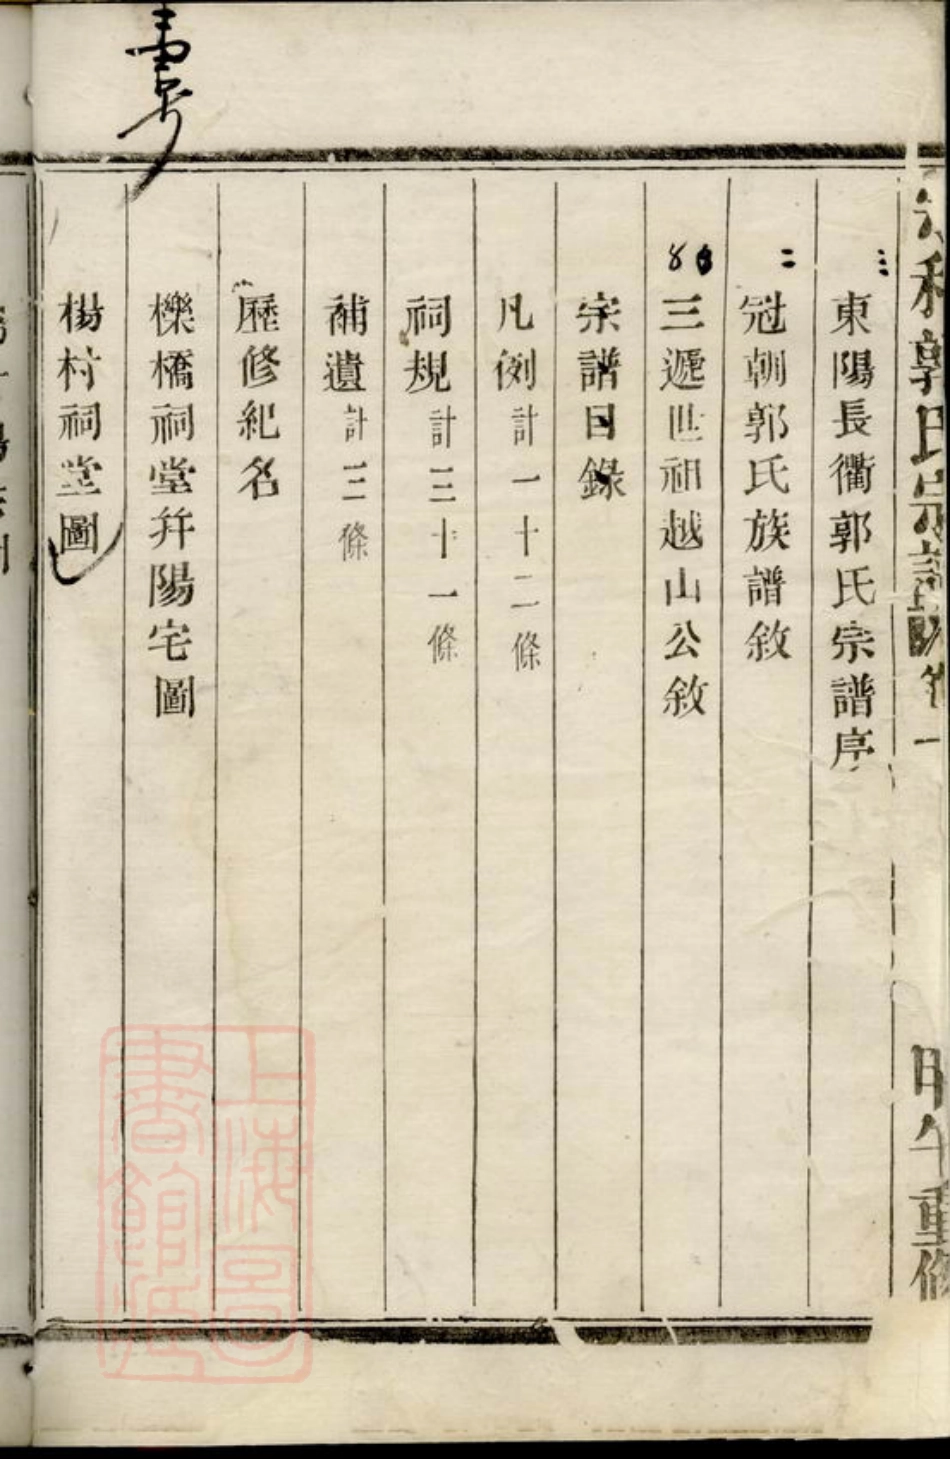 郭氏宗譜
卷一
甲午重修
東陽長衢郭氏宗譜序
冠朝郭氏族譜敘
三遞世祖越山公敘
宗譜目錄
凡例計一十二條
祠規計三十一條
補遺計三條
歷修紀名
櫟橋祠堂并陽宅圖
楊村祠堂圖
上海圖
書館藏